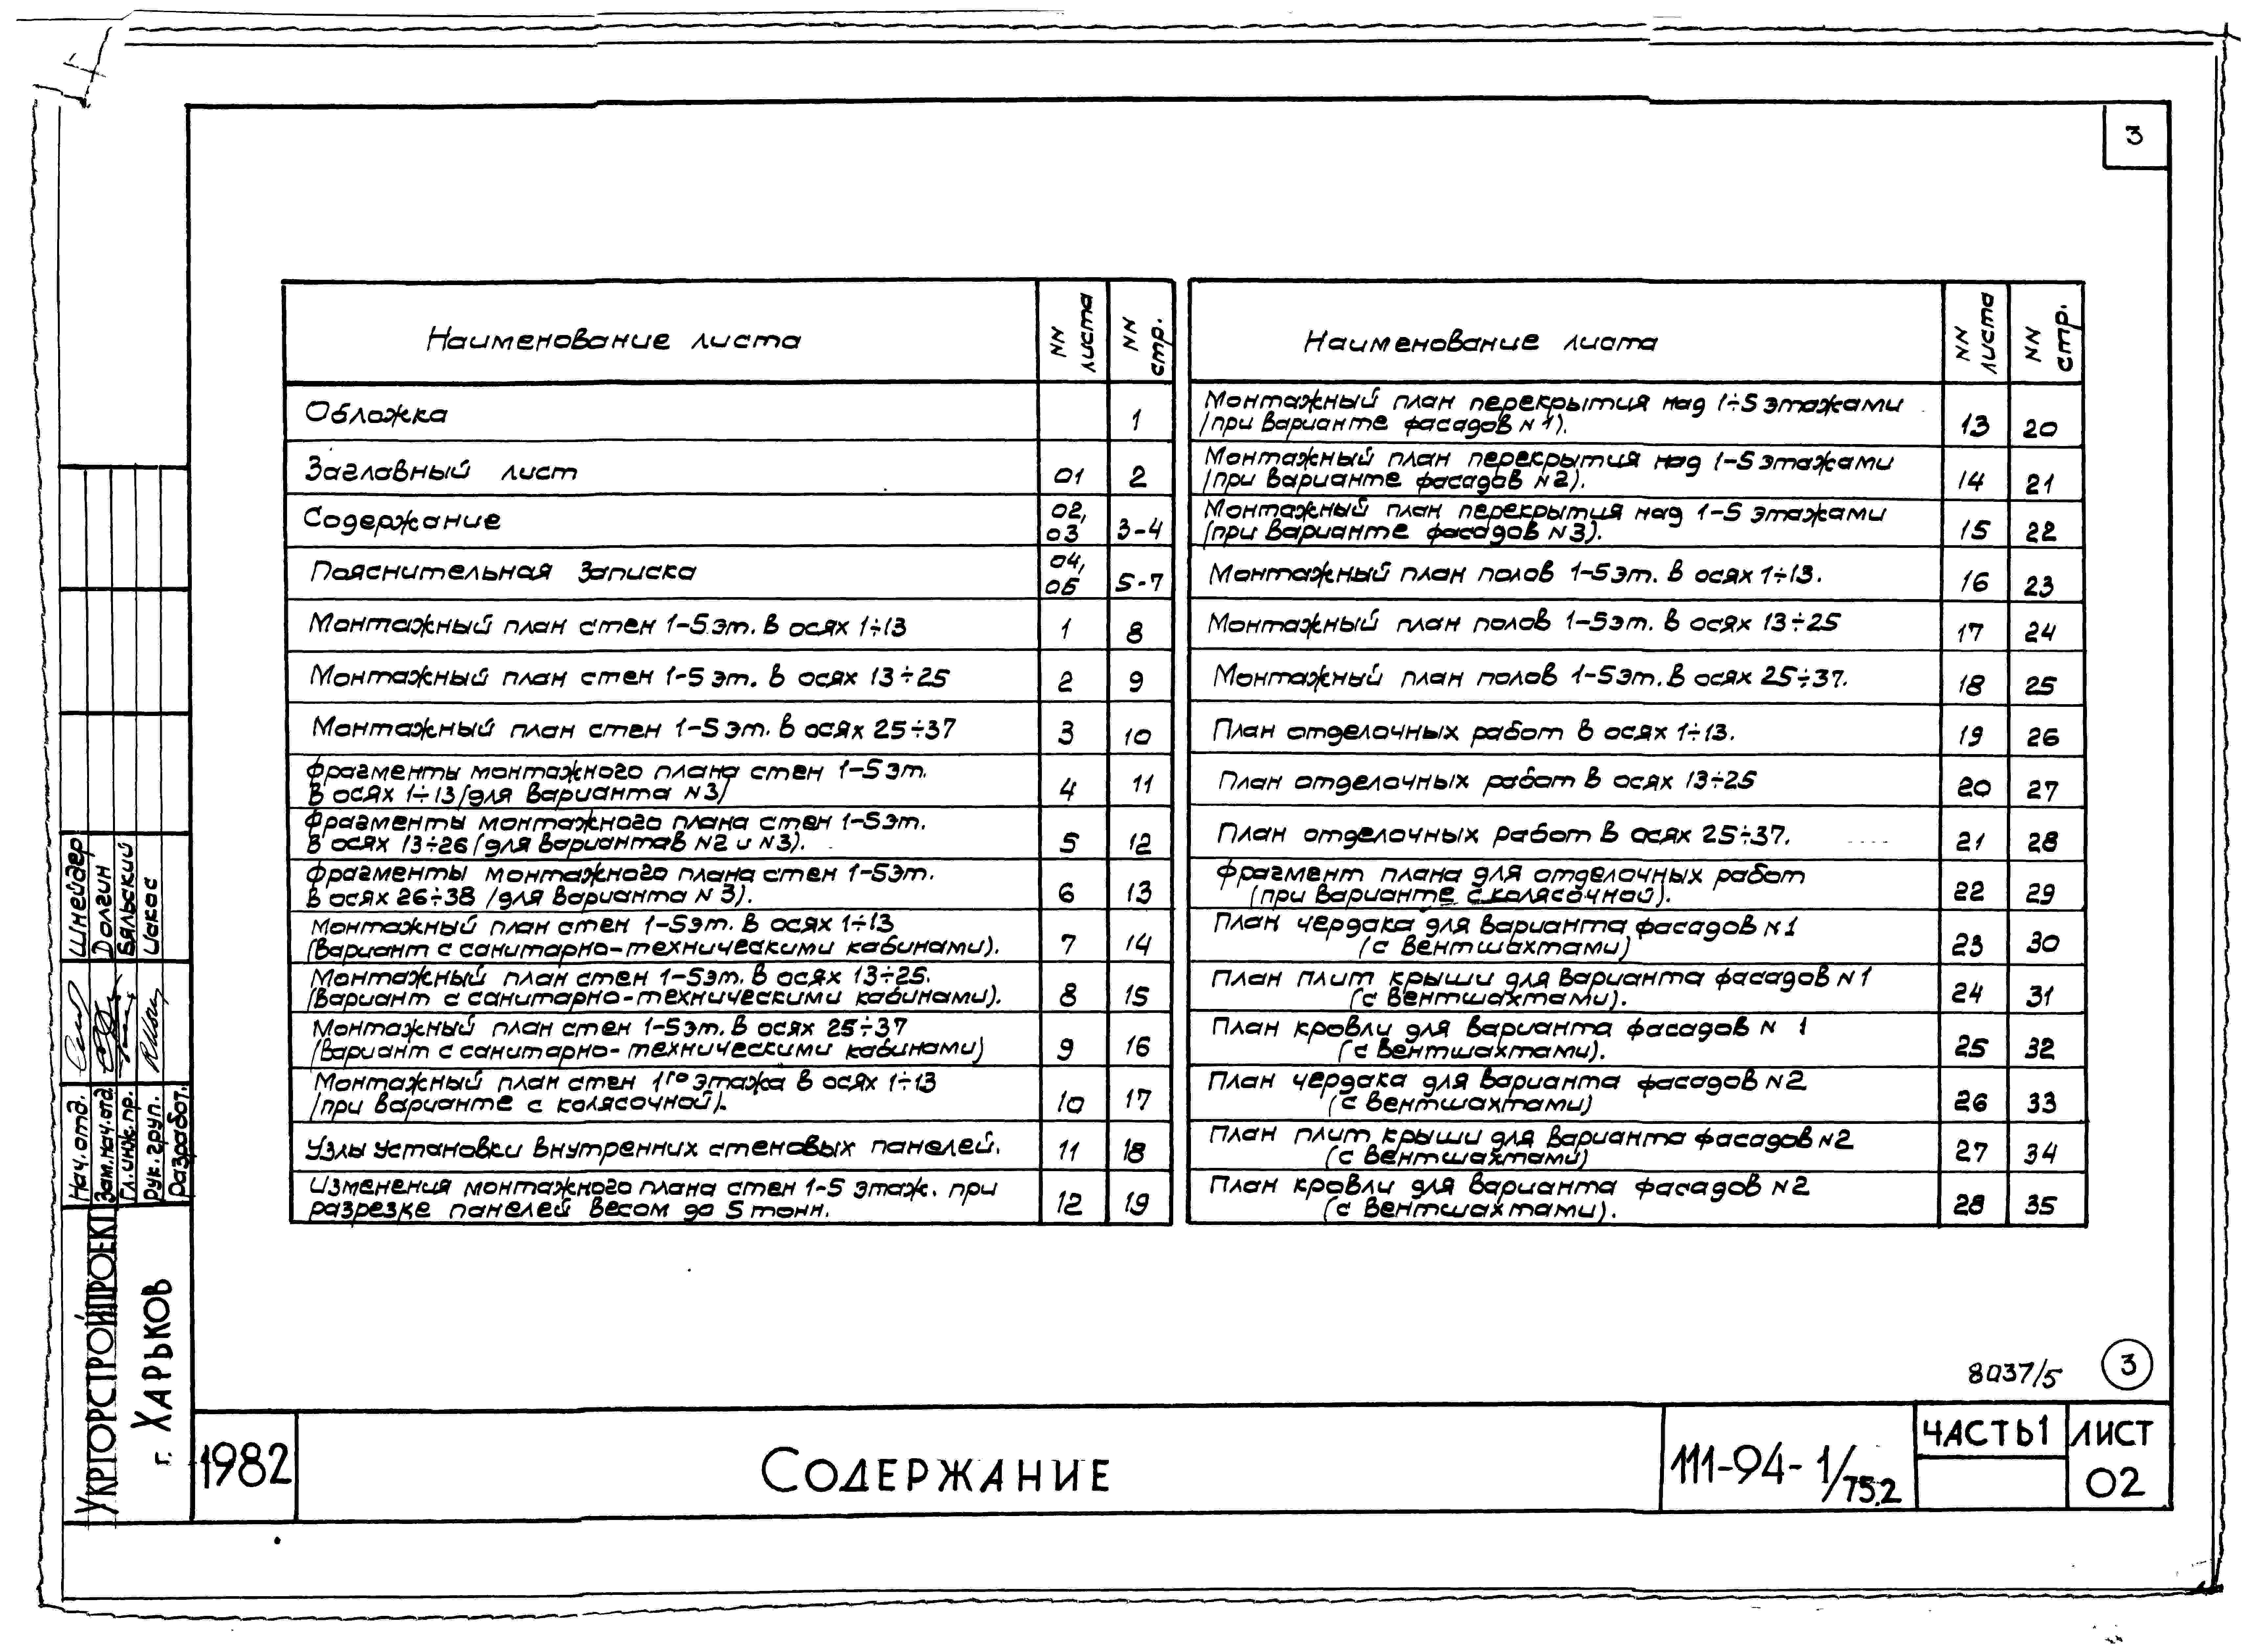 3
Наименование листа
NN листа
NN стр.
Обложка
1
Заглавный лист
01
2
Содержание
02,
03
3-4
Пояснительная записка
04,
05-7
Монтажный план стен 1-5 эт. в осях 1÷13
1
8
Монтажный план стен 1-5 эт. в осях 13÷25
2
9
Монтажный план стен 1-5 эт. в осях 25÷37
3
10
Фрагменты монтажного плана стен 1-5 эт.
в осях 1÷13 /для варианта N3/
4
11
Фрагменты монтажного плана стен 1-5 эт.
в осях 13÷26 /для вариантав N2 и N3).
5
12
Фрагменты монтажного плана стен 1-5 эт.
в осях 26÷38 /для варианта N3).
6
13
Монтажный план стен 1-5 эт. в осях 1÷13
(вариант с санитарно-техническими кабинами).
7
14
Монтажный план стен 1-5 эт. в осях 13÷25.
(вариант с санитарно-техническими кабинами).
8
15
Монтажный план стен 1-5 эт. в осях 25÷37
(вариант с санитарно-техническими кабинами)
9
16
Монтажный план стен 1го этажа в осях 1÷13
/при варианте с колясочной).
10
17
Узлы установки внутренних стеновых панелей.
11
18
Изменения монтажного плана стен 1-5 этаж. при
разрезке панелей весом до 5 тонн.
12
19
Наименование листа
NN листа
NN стр.
Монтажный план перекрытия над 1÷5 этажами
/при варианте фасадов N1).
13
20
Монтажный план перекрытия над 1-5 этажами
/при варианте фасадов N2).
14
21
Монтажный план перекрытия над 1-5 этажами
(при варианте фасадов N3).
15
22
Монтажный план полов 1-5 эт. в осях 1÷13.
16
23
Монтажный план полов 1-5 эт. в осях 13÷25
17
24
Монтажный план полов 1-5 эт. в осях 25÷37.
18
25
План отделочных работ в осях 1÷13.
19
26
План отделочных работ в осях 13÷25
20
27
План отделочных работ в осях 25÷37.
21
28
Фрагмент плана для отделочных работ
(при варианте с колясочной).
22
29
План чердака для варианта фасадов N1
(с вентшахтами)
23
30
План плит крыши для варианта фасадов N1
(с вентшахтами).
24
31
План кровли для варианта фасадов N 1
(с вентшахтами).
25
32
План чердака для варианта фасадов N2
(с вентшахтами)
26
33
План плит крыши для варианта фасадов N2
(с вентшахтами)
27
34
План кровли для варианта фасадов N2
(с вентшахтами).
28
35
Нач. отд.
Шнейдер
Зам. нач. отд.
Долгин
Гл. инж. пр.
Бяльский
Рук. груп.
Цакас
Разработ.
УКРГОРСТРОЙПРОЕКТ
г. ХАРЬКОВ
8037/5
3
1982
СОДЕРЖАНИЕ
111-94-1/75.2
ЧАСТЬ 1
ЛИСТ
02